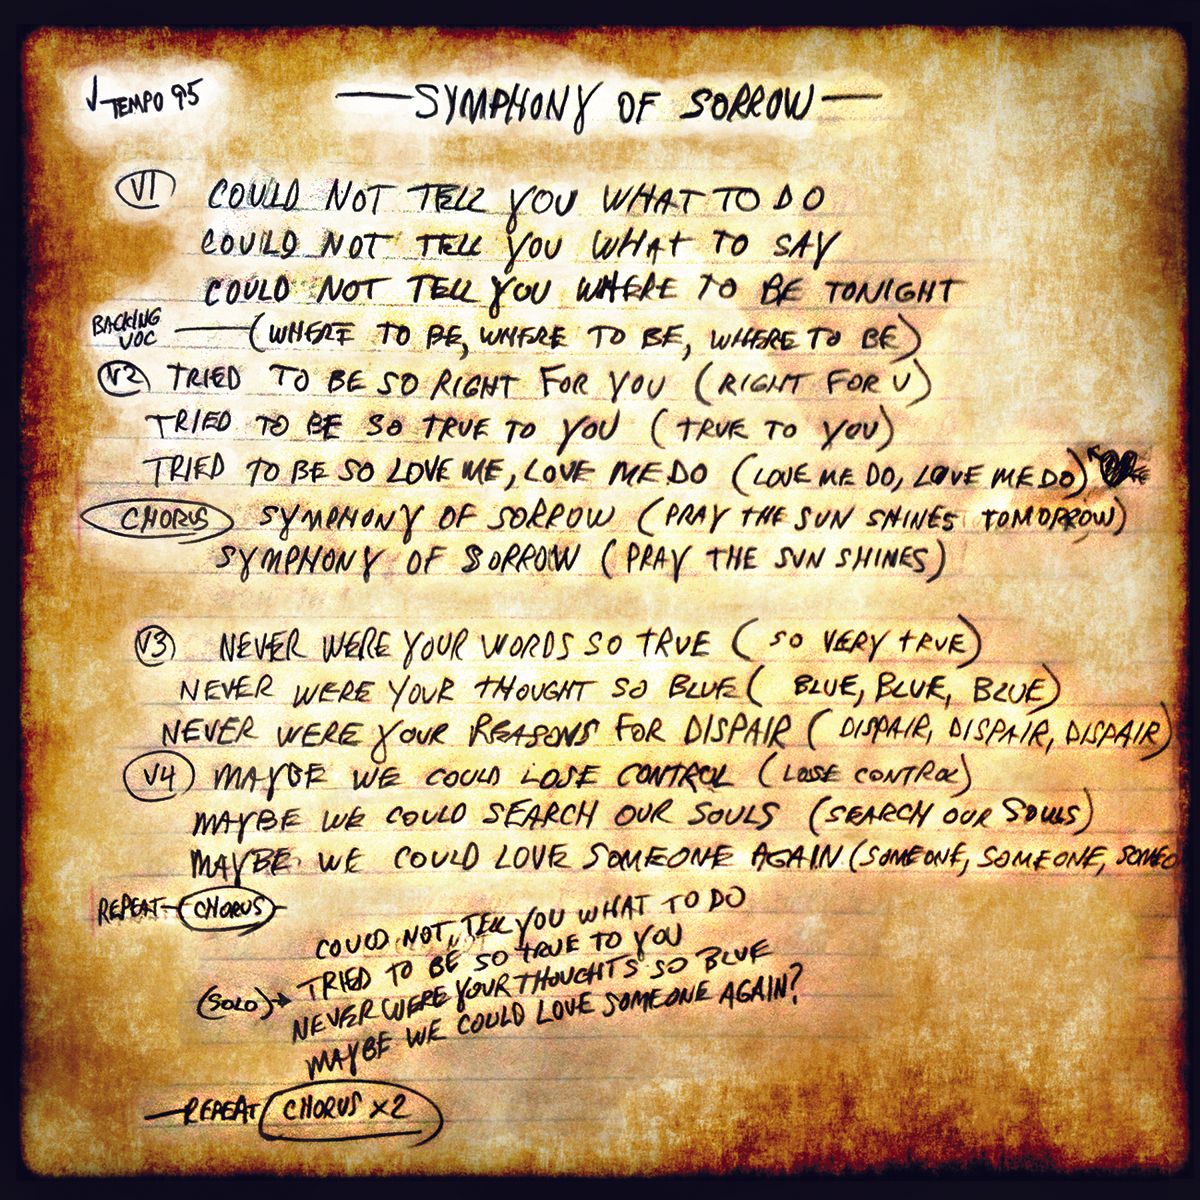 √ TEMPO 95 — SYMPHONY OF SORROW —
V1 COULD NOT TELL YOU WHAT TO DO
COULD NOT TELL YOU WHAT TO SAY
COULD NOT TELL YOU WHERE TO BE TONIGHT
BACKING VOC — (WHERE TO BE, WHERE TO BE, WHERE TO BE)
V2 TRIED TO BE SO RIGHT FOR YOU (RIGHT FOR U)
TRIED TO BE SO TRUE TO YOU (TRUE TO YOU)
TRIED TO BE SO LOVE ME, LOVE ME DO (LOVE ME DO, LOVE ME DO)
CHORUS SYMPHONY OF SORROW (PRAY THE SUN SHINES TOMORROW)
SYMPHONY OF SORROW (PRAY THE SUN SHINES)
V3 NEVER WERE YOUR WORDS SO TRUE (SO VERY TRUE)
NEVER WERE YOUR THOUGHT SO BLUE (BLUE, BLUE, BLUE)
NEVER WERE YOUR REASONS FOR DISPAIR (DISPAIR, DISPAIR, DISPAIR)
V4 MAYBE WE COULD LOSE CONTROL (LOSE CONTROL)
MAYBE WE COULD SEARCH OUR SOULS (SEARCH OUR SOULS)
MAYBE WE COULD LOVE SOMEONE AGAIN (SOMEONE, SOMEONE, SOMEO
REPEAT — CHORUS —
COULD NOT TELL YOU WHAT TO DO
TRIED TO BE SO TRUE TO YOU
(SOLO) → NEVER WERE YOUR THOUGHTS SO BLUE
MAYBE WE COULD LOVE SOMEONE AGAIN?
— REPEAT CHORUS x2